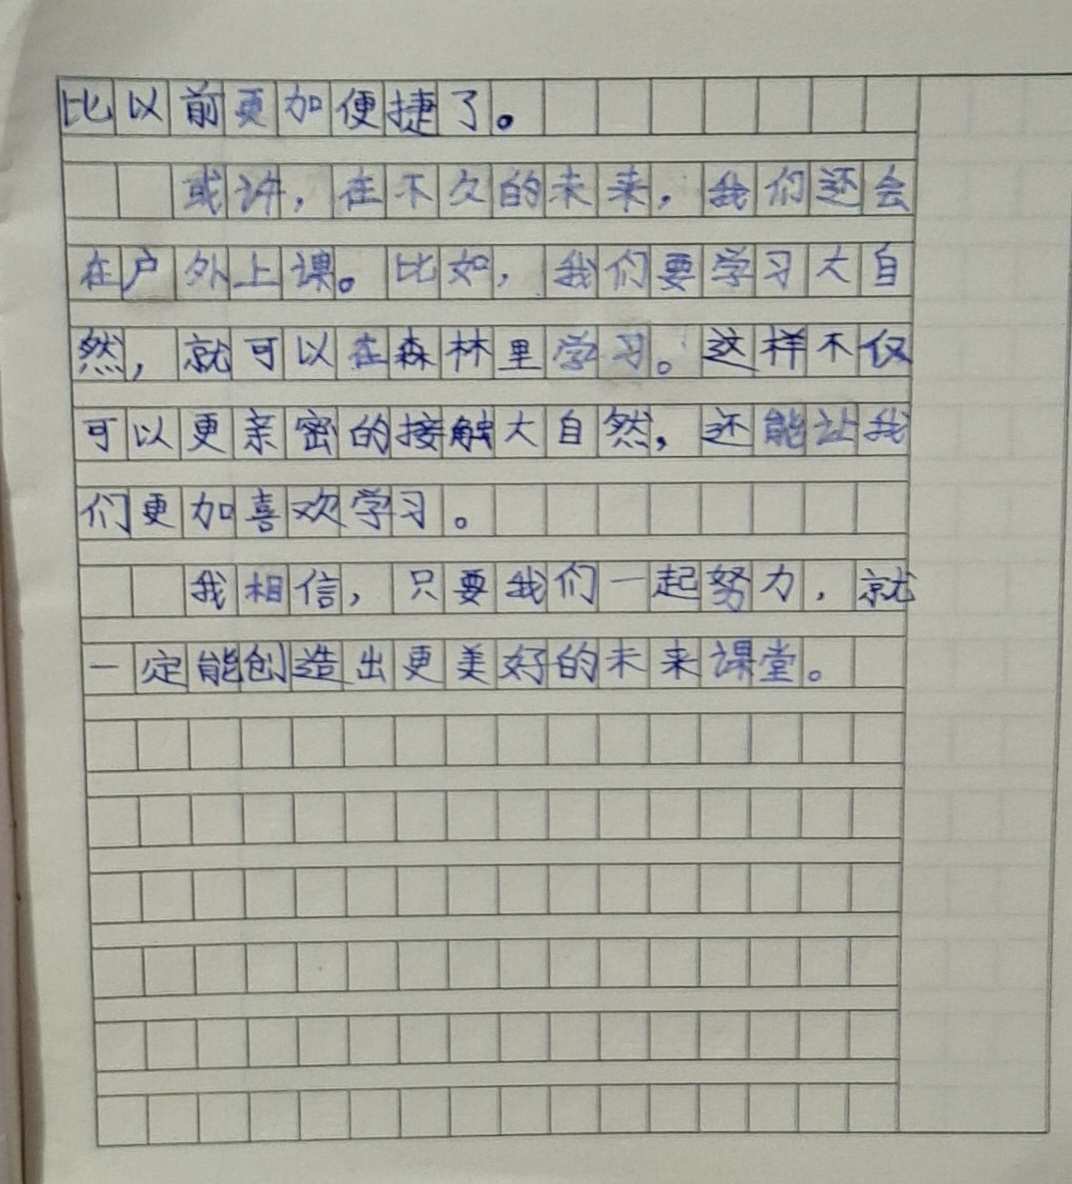 比以前更加便捷了。
或许，在不久的未来，我们还会
在户外上课。比如，我们要学习大自
然，就可以在森林里学习。这样不仅
可以更亲密的接触大自然，还能让我
们更加喜欢学习。
我相信，只要我们一起努力，就
一定能创造出更美好的未来课堂。